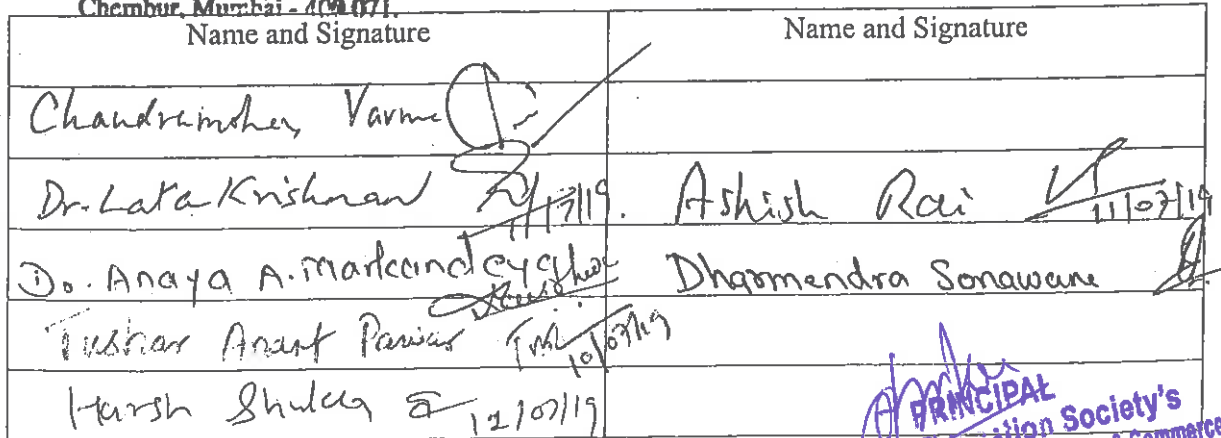 Chembur, Mumbai - 400 071.
Name and Signature Name and Signature
Chandramohan Varma
Dr. Lata Krishnan 11/7/19. Ashish Rai 11/07/19
Dr. Anaya A. Markandeya Dharmendra Sonawane
Tushar Anant Pawar 10/07/19
Harsh Shukla 12/07/19
PRINCIPAL
Society's
Commerce